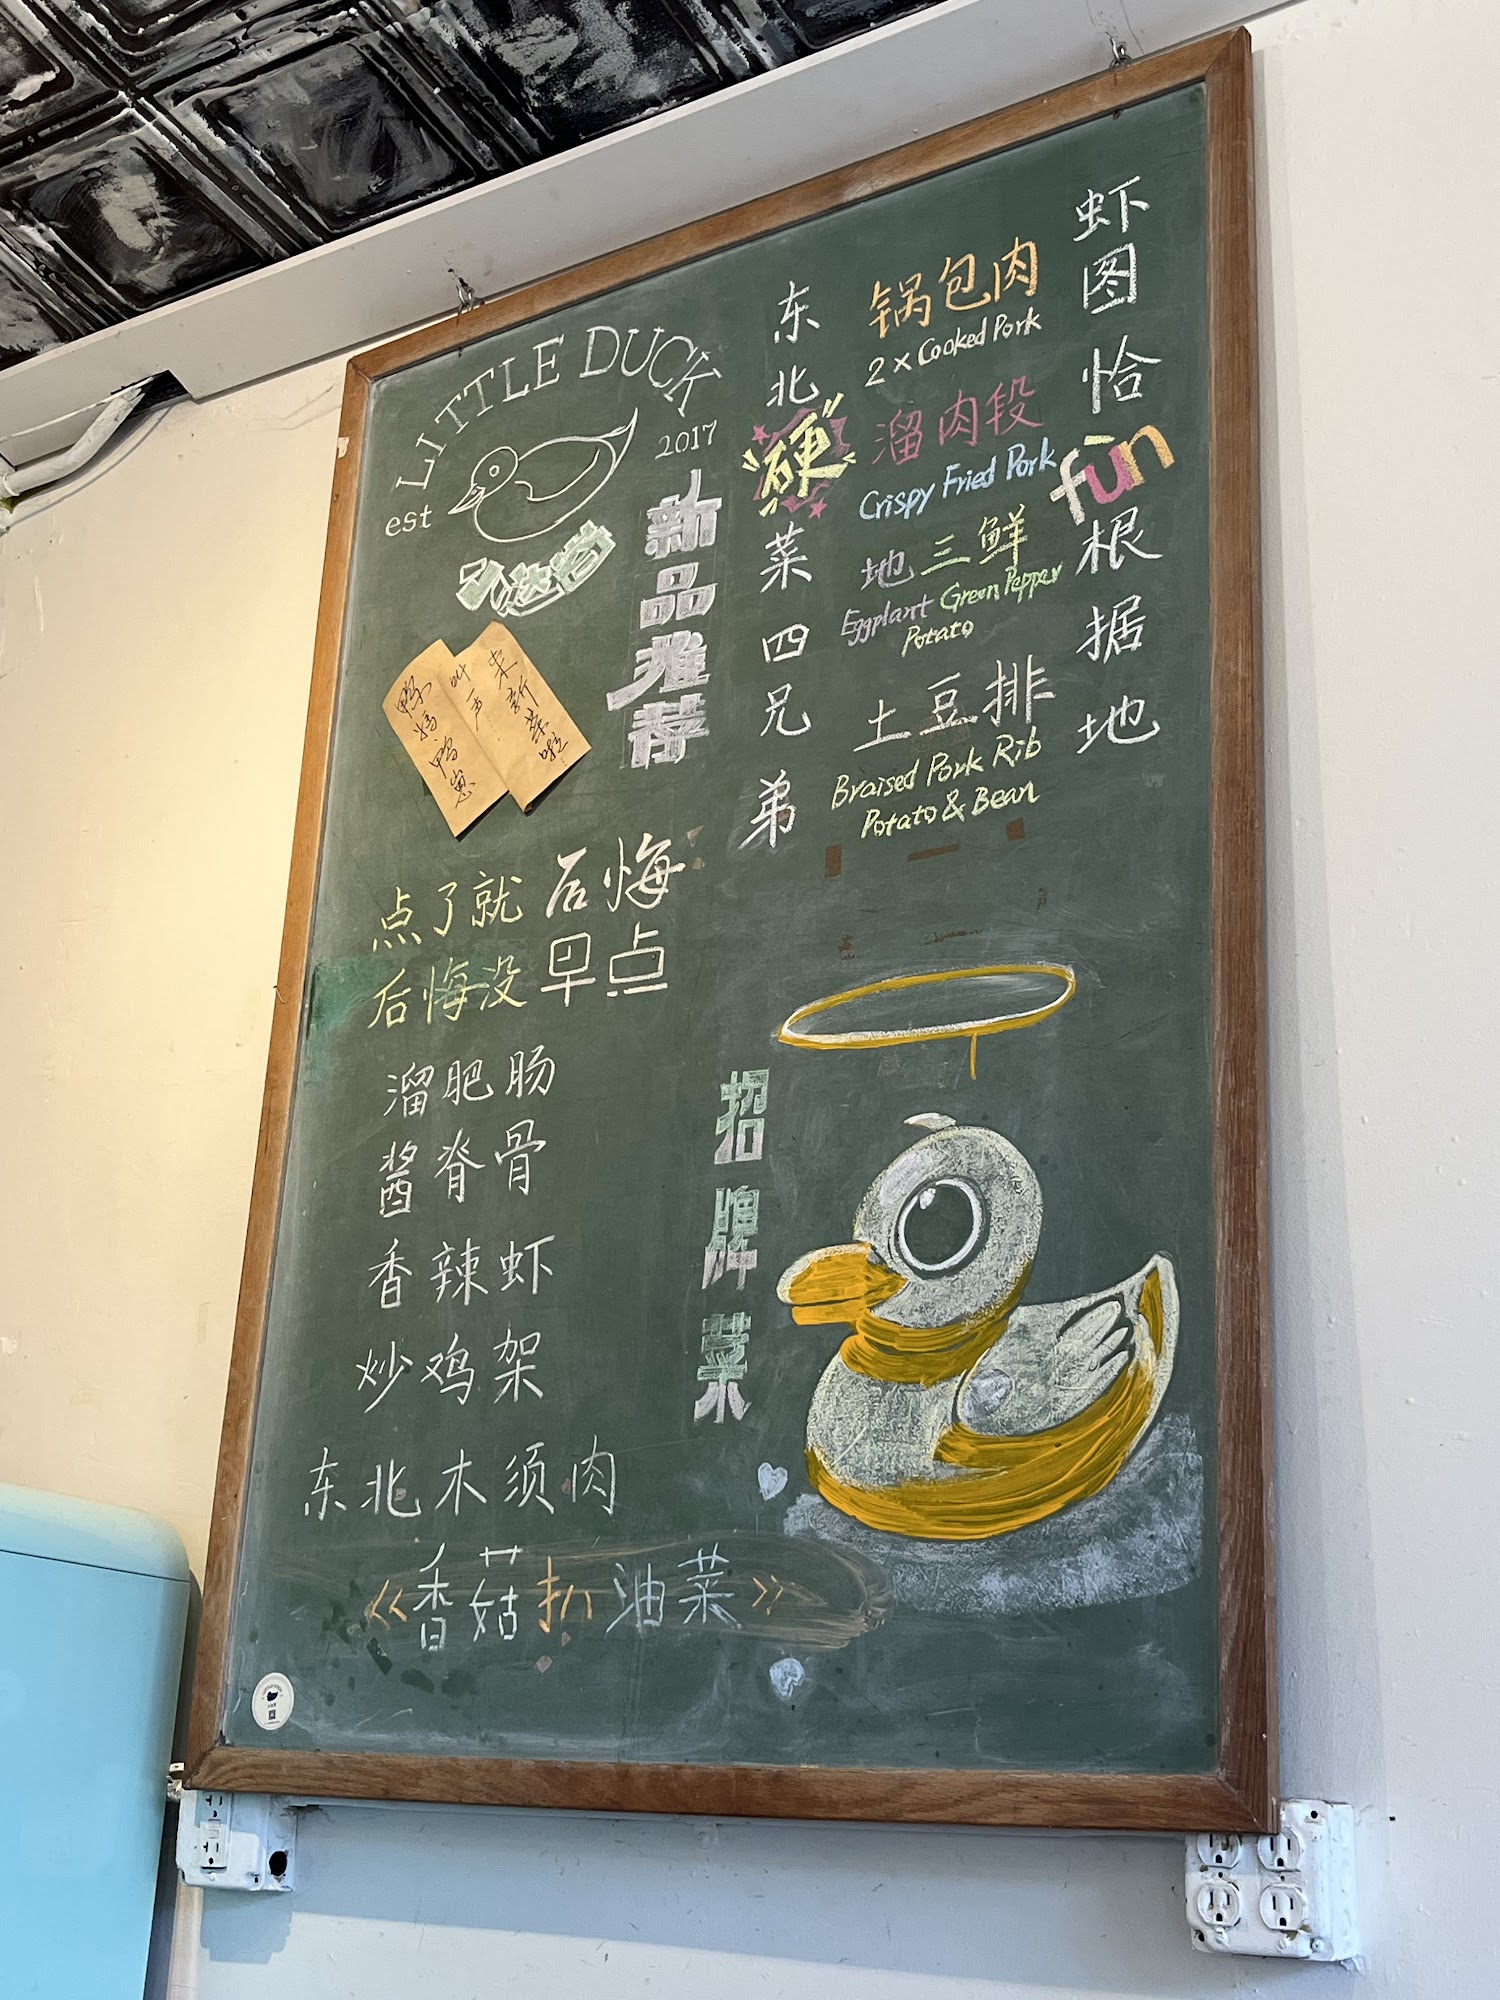 LITTLE DUCK
est 2017
新品推荐
鸭妈鸭崽
叫声
来新菜啦
点了就后悔
后悔没早点
溜肥肠
酱脊骨
香辣虾
炒鸡架
东北木须肉
《香菇扒油菜》
招牌菜
东北硬菜四兄弟
锅包肉
2 x Cooked Pork
溜肉段
Crispy Fried Pork
地三鲜
Eggplant Green Pepper
Potato
土豆排
Braised Pork Rib
Potato & Bean
虾图恰fūn根据地